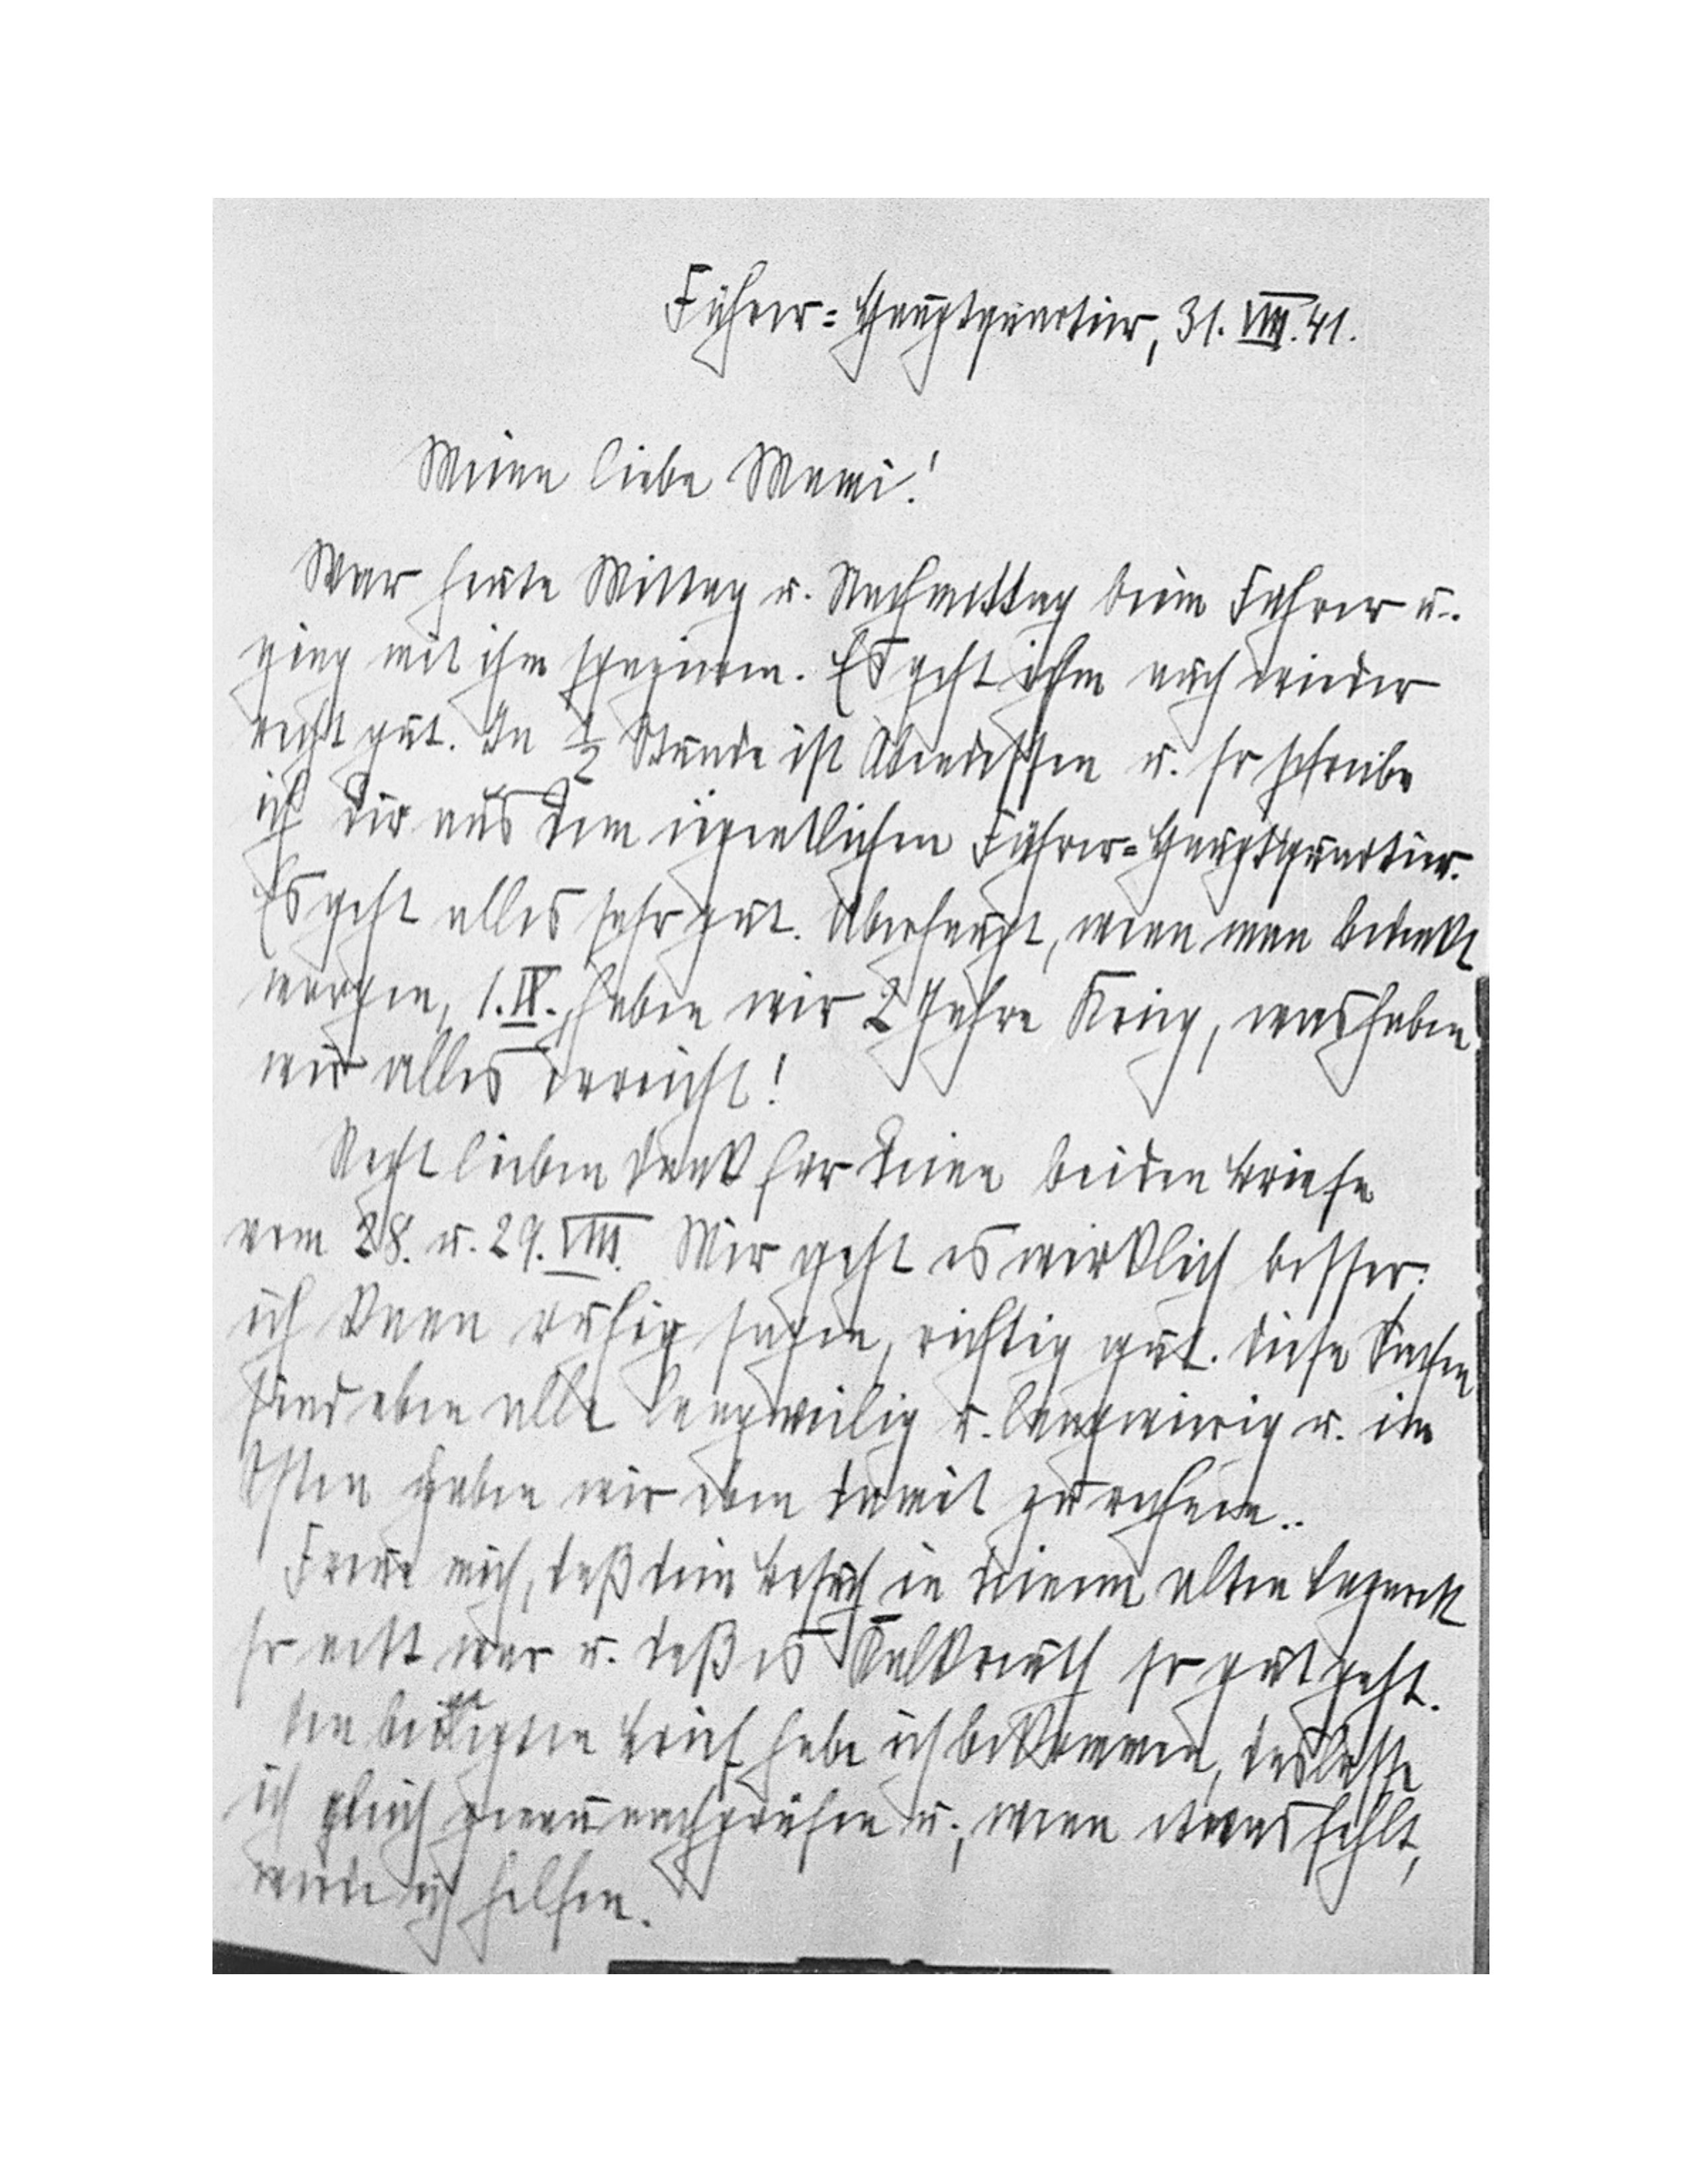 Führer-Hauptquartier, 31.VIII.41.
Meine liebe Mami!
War heute Mittag u. Nachmittag beim Führer u.
ging mit ihm spazieren. Es geht ihm auch wieder
recht gut. In ½ Stunde ist Abendessen u. so schreibe
ich Dir aus dem eigentlichen Führer-Hauptquartier.
Es geht alles sehr gut. Überhaupt, wenn man bedenkt
morgen, 1.IX., haben wir 2 Jahre Krieg, was haben
wir alles erreicht!
Recht lieben Dank für Deine beiden Briefe
vom 28. u. 29.VIII. Mir geht es wirklich besser;
ich kann ruhig sagen, richtig gut. Diese Sachen
sind eben alle langweilig u. langwierig u. im
Osten haben wir eben damit zu rechnen..
Freue mich, daß dein Besuch in deinem alten Lazarett
so nett war u. daß es Kalkreuth so gut geht.
Den Brief habe ich bekommen, das lasse
ich gleich genau nachprüfen u., wenn etwas fehlt,
werde ich helfen.